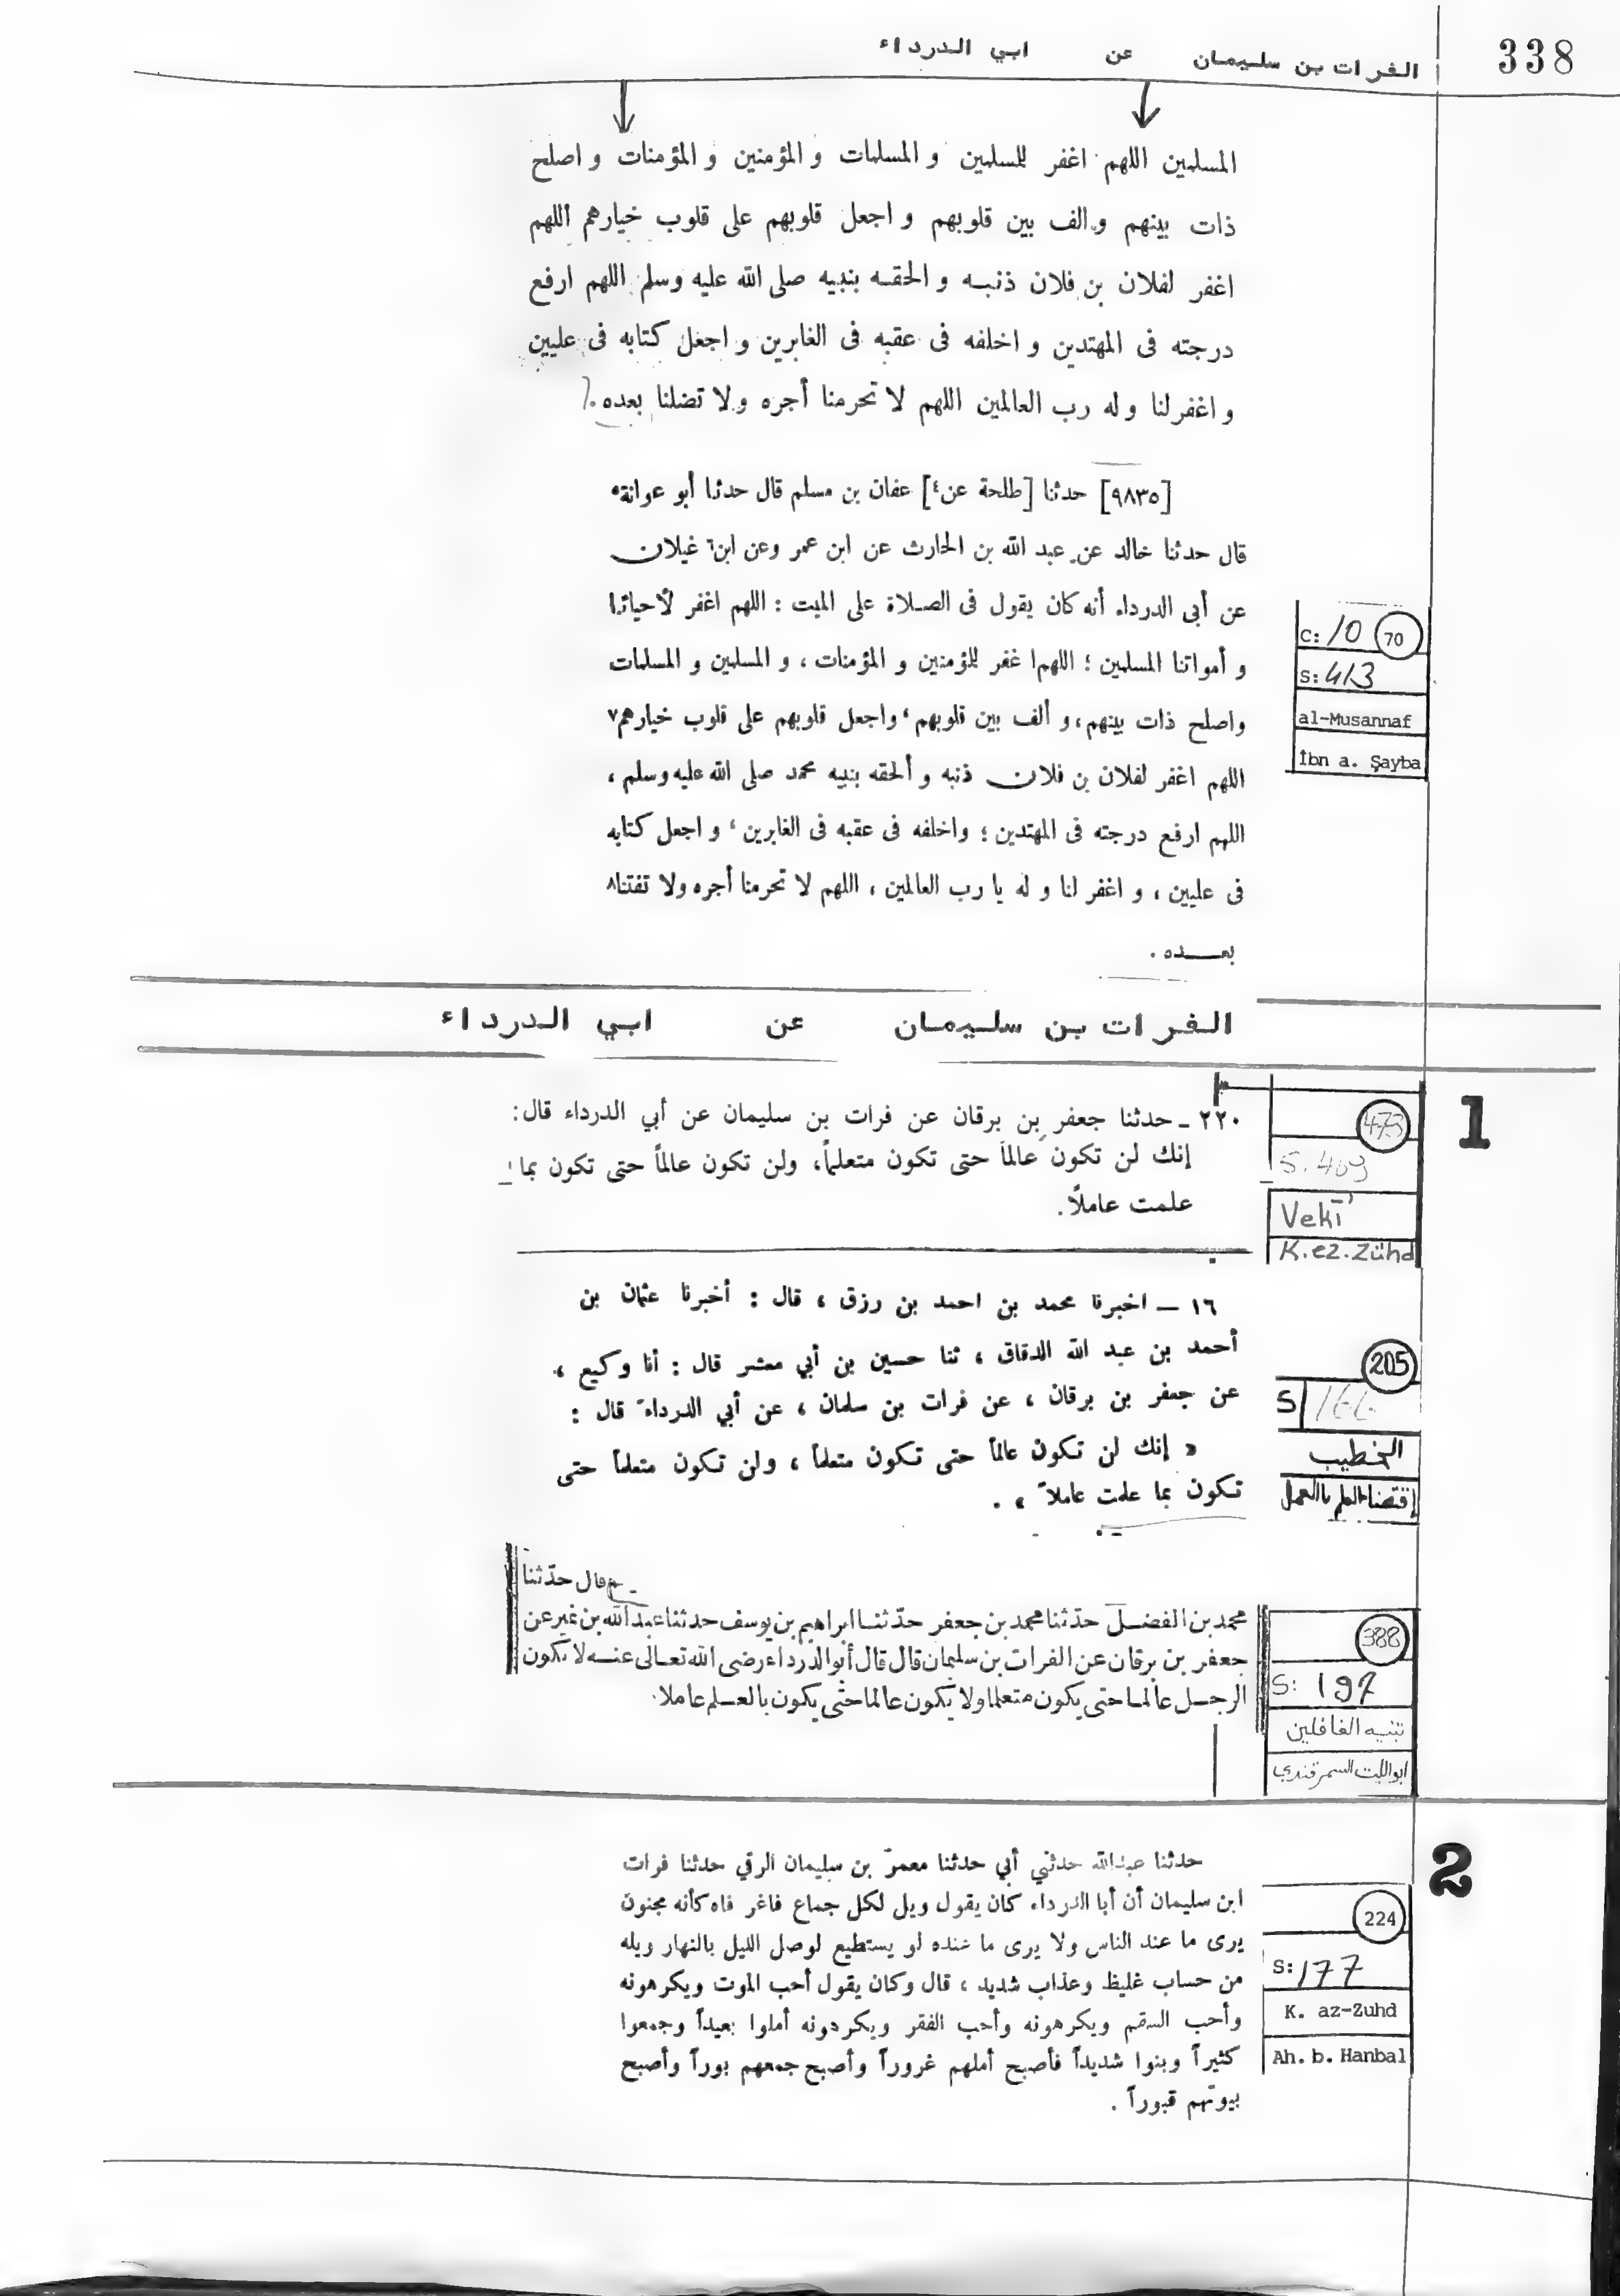 338
الفرات بن سليمان عن ابي الدرداء
المسلمين اللهم اغفر للمسلمين و المسلمات و المؤمنين و المؤمنات و اصلح
ذات بينهم و الف بين قلوبهم و اجعل قلوبهم على قلوب خيارهم اللهم
اغفر لفلان بن فلان ذنبه و الحقه بنبيه صلى الله عليه وسلم اللهم ارفع
درجته فى المهتدين و اخلفه فى عقبه فى الغابرين و اجعل كتابه فى عليين
و اغفر لنا و له رب العالمين اللهم لا تحرمنا أجره و لا تضلنا بعده .
[٩٨٣٥] حدثنا [طلحة عن٤] عفان بن مسلم قال حدثنا أبو عوانة٥
قال حدثنا خالد عن عبد الله بن الحارث عن ابن عمر وعن ابن٦ غيلان
عن أبى الدرداء أنه كان يقول فى الصلاة على الميت : اللهم اغفر لأحيائنا
و أمواتنا المسلمين ؛ اللهم ا غفر للمؤمنين و المؤمنات ، و المسلمين و المسلمات
واصلح ذات بينهم ، و ألف بين قلوبهم ، واجعل قلوبهم على قلوب خيارهم٧
اللهم اغفر لفلان بن فلان ذنبه و ألحقه بنبيه محمد صلى الله عليه وسلم ،
اللهم ارفع درجته فى المهتدين ؛ واخلفه فى عقبه فى الغابرين ، و اجعل كتابه
فى عليين ، و اغفر لنا و له يا رب العالمين ، اللهم لا تحرمنا أجره ولا تفتنا٨
بعـــده .
C: 10 70
S: 413
al-Musannaf
İbn a. Şayba
الفرات بن سليمان عن ابي الدرداء
1
٢٢٠ ـ حدثنا جعفر بن برقان عن فرات بن سليمان عن أبي الدرداء قال:
إنك لن تكون عالماً حتى تكون متعلماً، ولن تكون عالماً حتى تكون بما
علمت عاملاً.
473
S. 409
Vekī'
K.ez.Zühd
١٦ — اخبرنا محمد بن احمد بن رزق ، قال : أخبرنا عثمان بن
أحمد بن عبد الله الدقاق ، ثنا حسين بن أبي معشر قال : أنا وكيع ،
عن جعفر بن برقان ، عن فرات بن سلمان ، عن أبي الدرداء قال :
« إنك لن تكون عالماً حتى تكون متعلماً ، ولن تكون متعلماً حتى
تكون بما علمت عاملاً » .
205
S
الخطيب
إقتضاء العلم بالعمل
قال حدّثنا
محمد بن الفضل حدّثنا محمد بن جعفر حدّثنا ابراهيم بن يوسف حدثنا عبد الله بن نمير عن
جعفر بن برقان عن الفرات بن سليمان قال قال أبو الدرداء رضى الله تعالى عنه لا يكون
الرجل عالما حتى يكون متعلما ولا يكون عالما حتى يكون بالعلم عاملا.
388
S: 197
تنبيه الغافلين
ابوالليث السمرقندي
2
حدثنا عبدالله حدثني أبي حدثنا معمرّ بن سليمان الرقي حدثنا فرات
ابن سليمان أن أبا الدرداء كان يقول ويل لكل جماع فاغر فاه كأنه مجنون
يرى ما عند الناس ولا يرى ما عنده لو يستطيع لوصل الليل بالنهار ويله
من حساب غليظ وعذاب شديد ، قال وكان يقول أحب الموت ويكرهونه
وأحب السقم ويكرهونه وأحب الفقر ويكرهونه أملوا بعيداً وجمعوا
كثيراً وبنوا شديداً فأصبح أملهم غروراً وأصبح جمعهم بوراً وأصبح
بيوتهم قبوراً .
224
S: 177
K. az-Zuhd
Ah. b. Hanbal